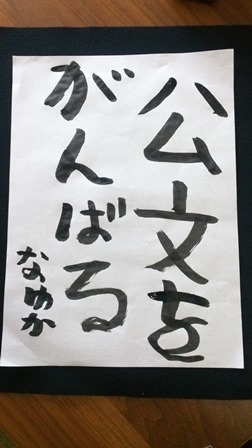 公文を
がんばる
なゆか